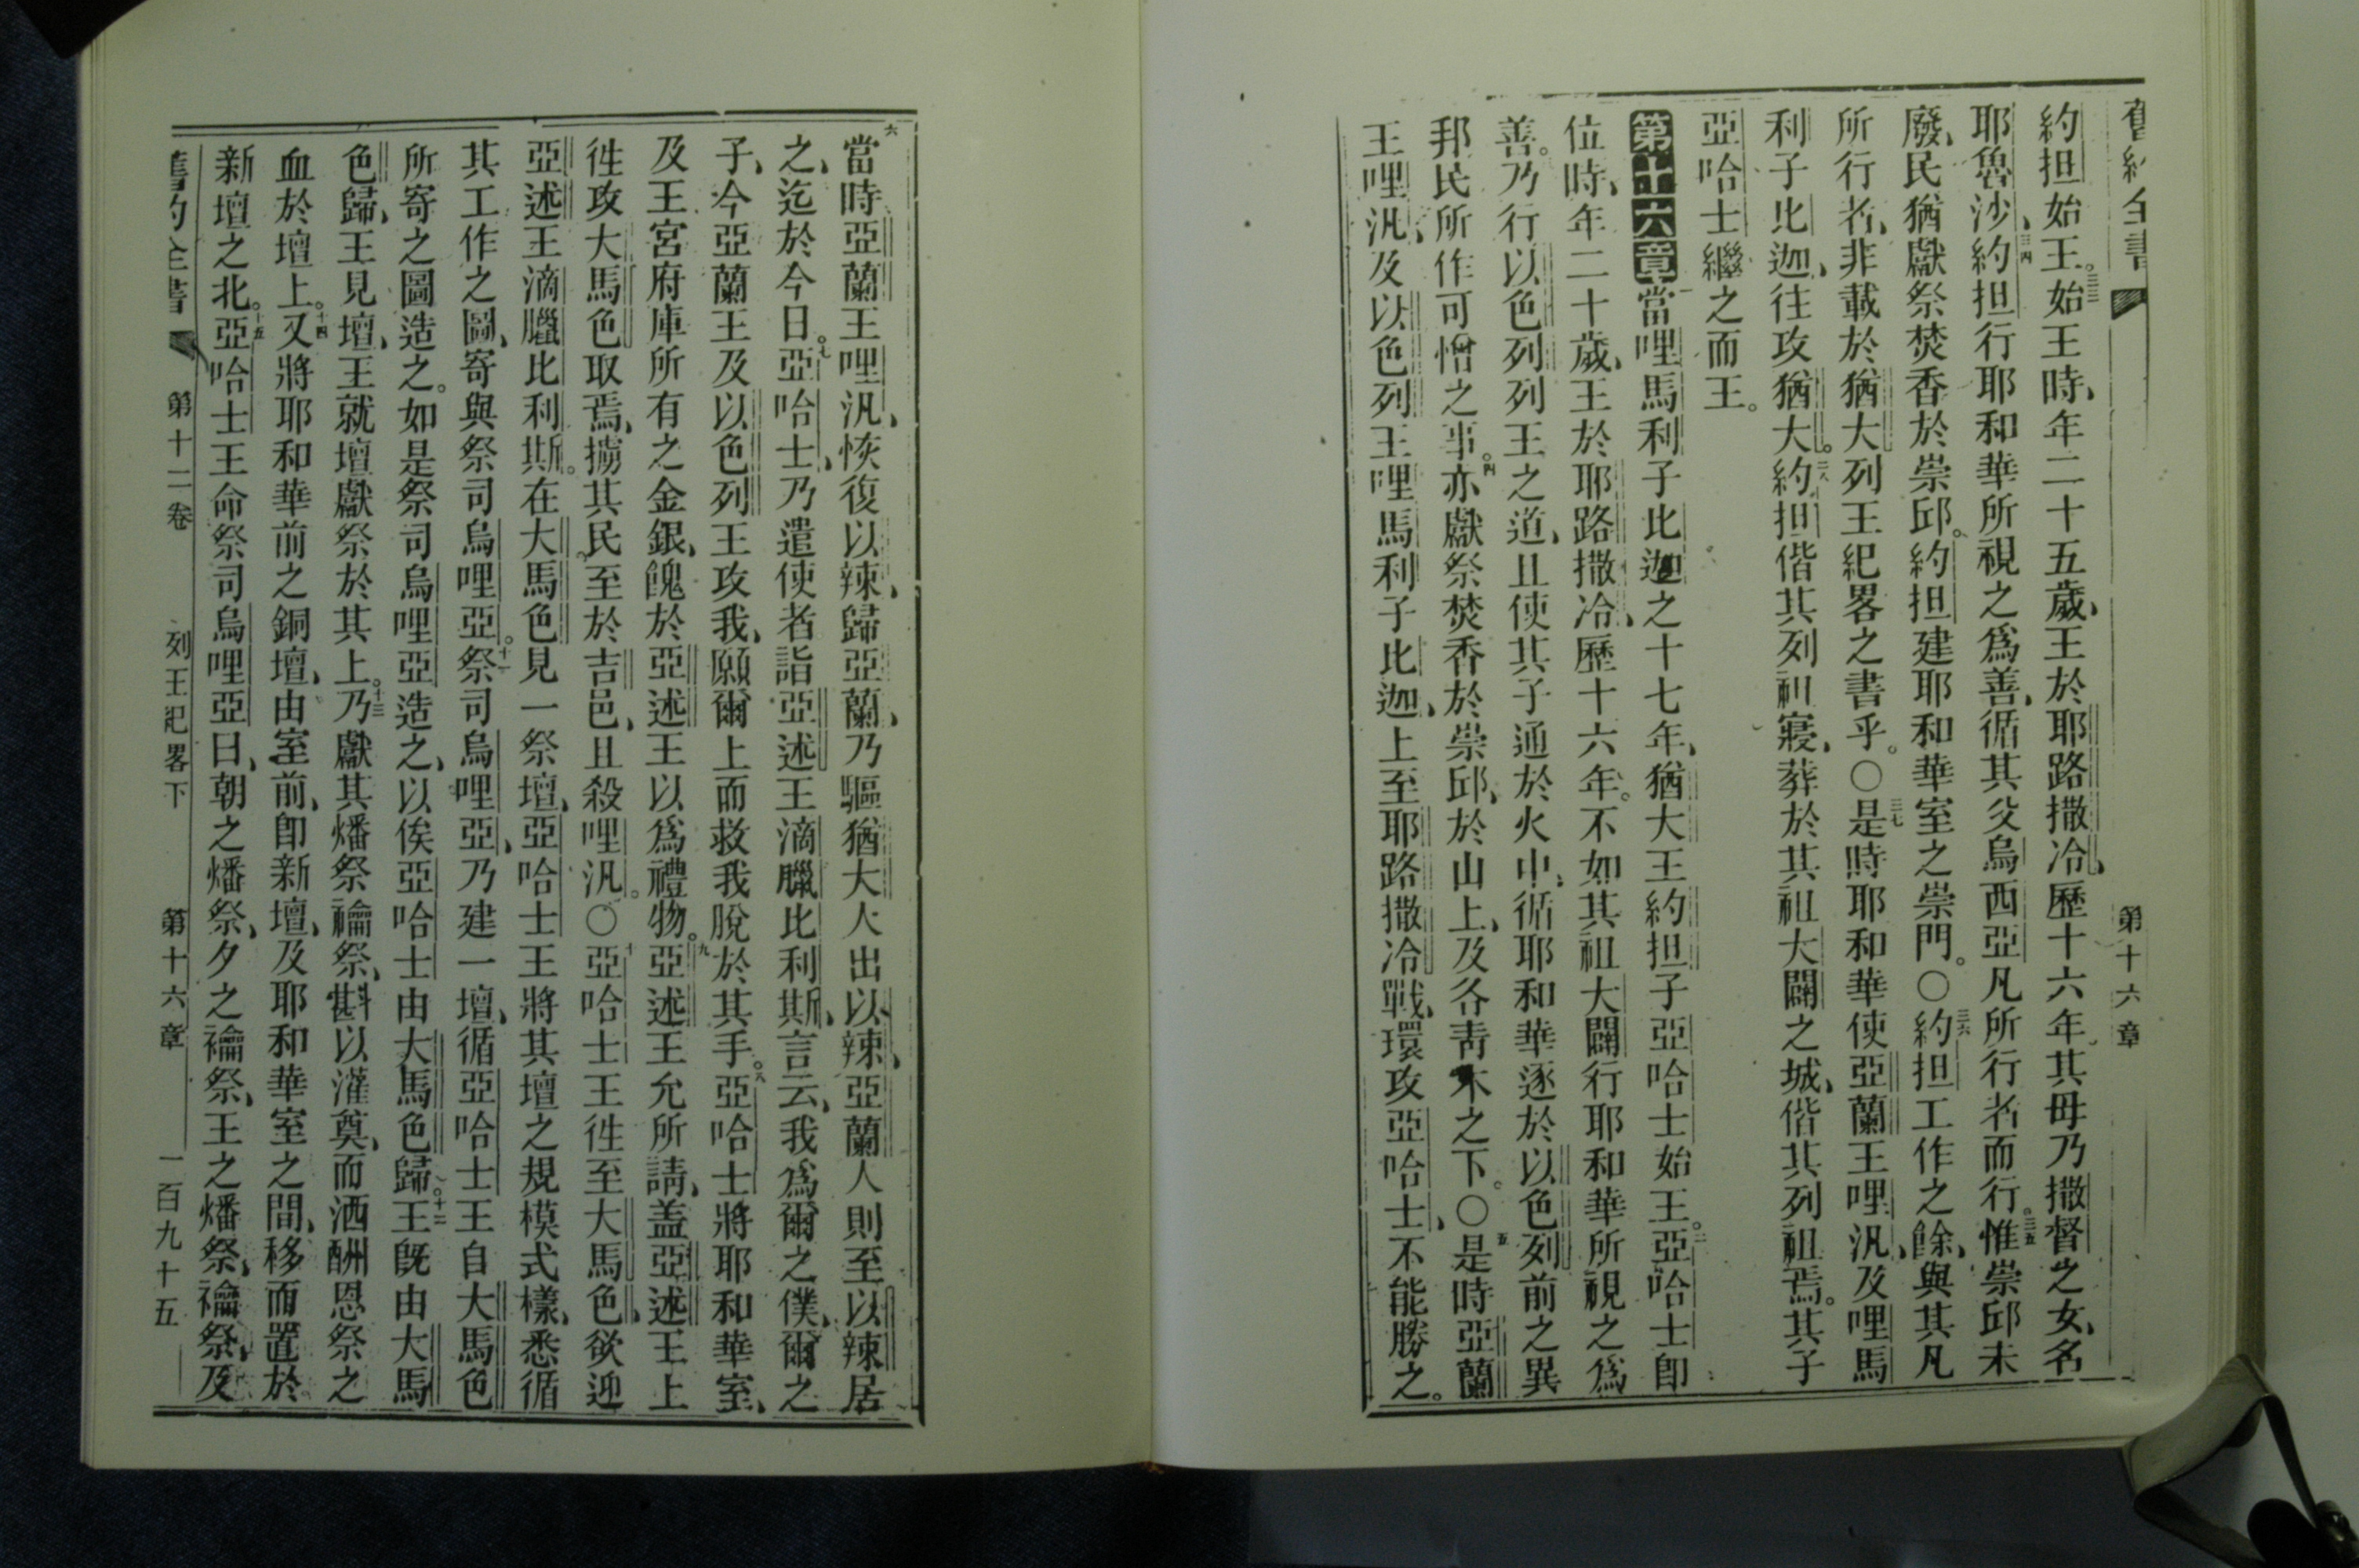 舊約全書 第十六章
約担始王。三三始王時、年二十五歲、王於耶路撒冷、歷十六年、其母乃撒督之女、名
耶魯沙、三四約担行耶和華所視之爲善、循其父烏西亞凡所行者而行。三五惟崇邱未
廢、民猶獻祭焚香於崇邱。約担建耶和華室之崇門。〇三六約担工作之餘、與其凡
所行者、非載於猶大列王紀畧之書乎。〇三七是時耶和華使亞蘭王哩汎、及哩馬
利子比迦、往攻猶大。三八約担偕其列祖寢、葬於其祖大闢之城、偕其列祖焉。其子
亞哈士繼之而王。
第十六章 當哩馬利子比迦之十七年、猶大王約担子亞哈士始王。二亞哈士卽
位時、年二十歲、王於耶路撒冷、歷十六年。不如其祖大闢行耶和華所視之爲
善。乃行以色列列王之道、且使其子通於火中、循耶和華逐於以色列前之異
邦民所作可憎之事。四亦獻祭焚香於崇邱、於山上、及各靑木之下。〇五是時亞蘭
王哩汎、及以色列王哩馬利子比迦、上至耶路撒冷戰、環攻亞哈士、不能勝之。
六當時亞蘭王哩汎、恢復以辣、歸亞蘭、乃驅猶大人出以辣、亞蘭人則至以辣居
之、迄於今日。七亞哈士、乃遣使者詣亞述王滴臘比利斯、言云、我爲爾之僕、爾之
子、今亞蘭王及以色列王攻我、願爾上而救我脫於其手。八亞哈士將耶和華室、
及王宮府庫所有之金銀、餽於亞述王以爲禮物。九亞述王允所請、盖亞述王上
徃攻大馬色取焉、擄其民至於吉邑、且殺哩汎。〇十亞哈士王徃至大馬色、欲迎
亞述王滴臘比利斯。在大馬色見一祭壇、亞哈士王將其壇之規模式樣、悉循
其工作之圖、寄與祭司烏哩亞。十一祭司烏哩亞、乃建一壇、循亞哈士王自大馬色
所寄之圖造之。如是祭司烏哩亞造之、以俟亞哈士由大馬色歸。十二王旣由大馬
色歸、王見壇、王就壇獻祭於其上。十三乃獻其燔祭禴祭、斟以灌奠、而洒酬恩祭之
血於壇上。十四又將耶和華前之銅壇、由室前、卽新壇、及耶和華室之間、移而置於
新壇之北。十五亞哈士王命祭司烏哩亞曰、朝之燔祭、夕之禴祭、王之燔祭、禴祭、及
舊約全書 第十二卷 列王紀畧下 第十六章 一百九十五